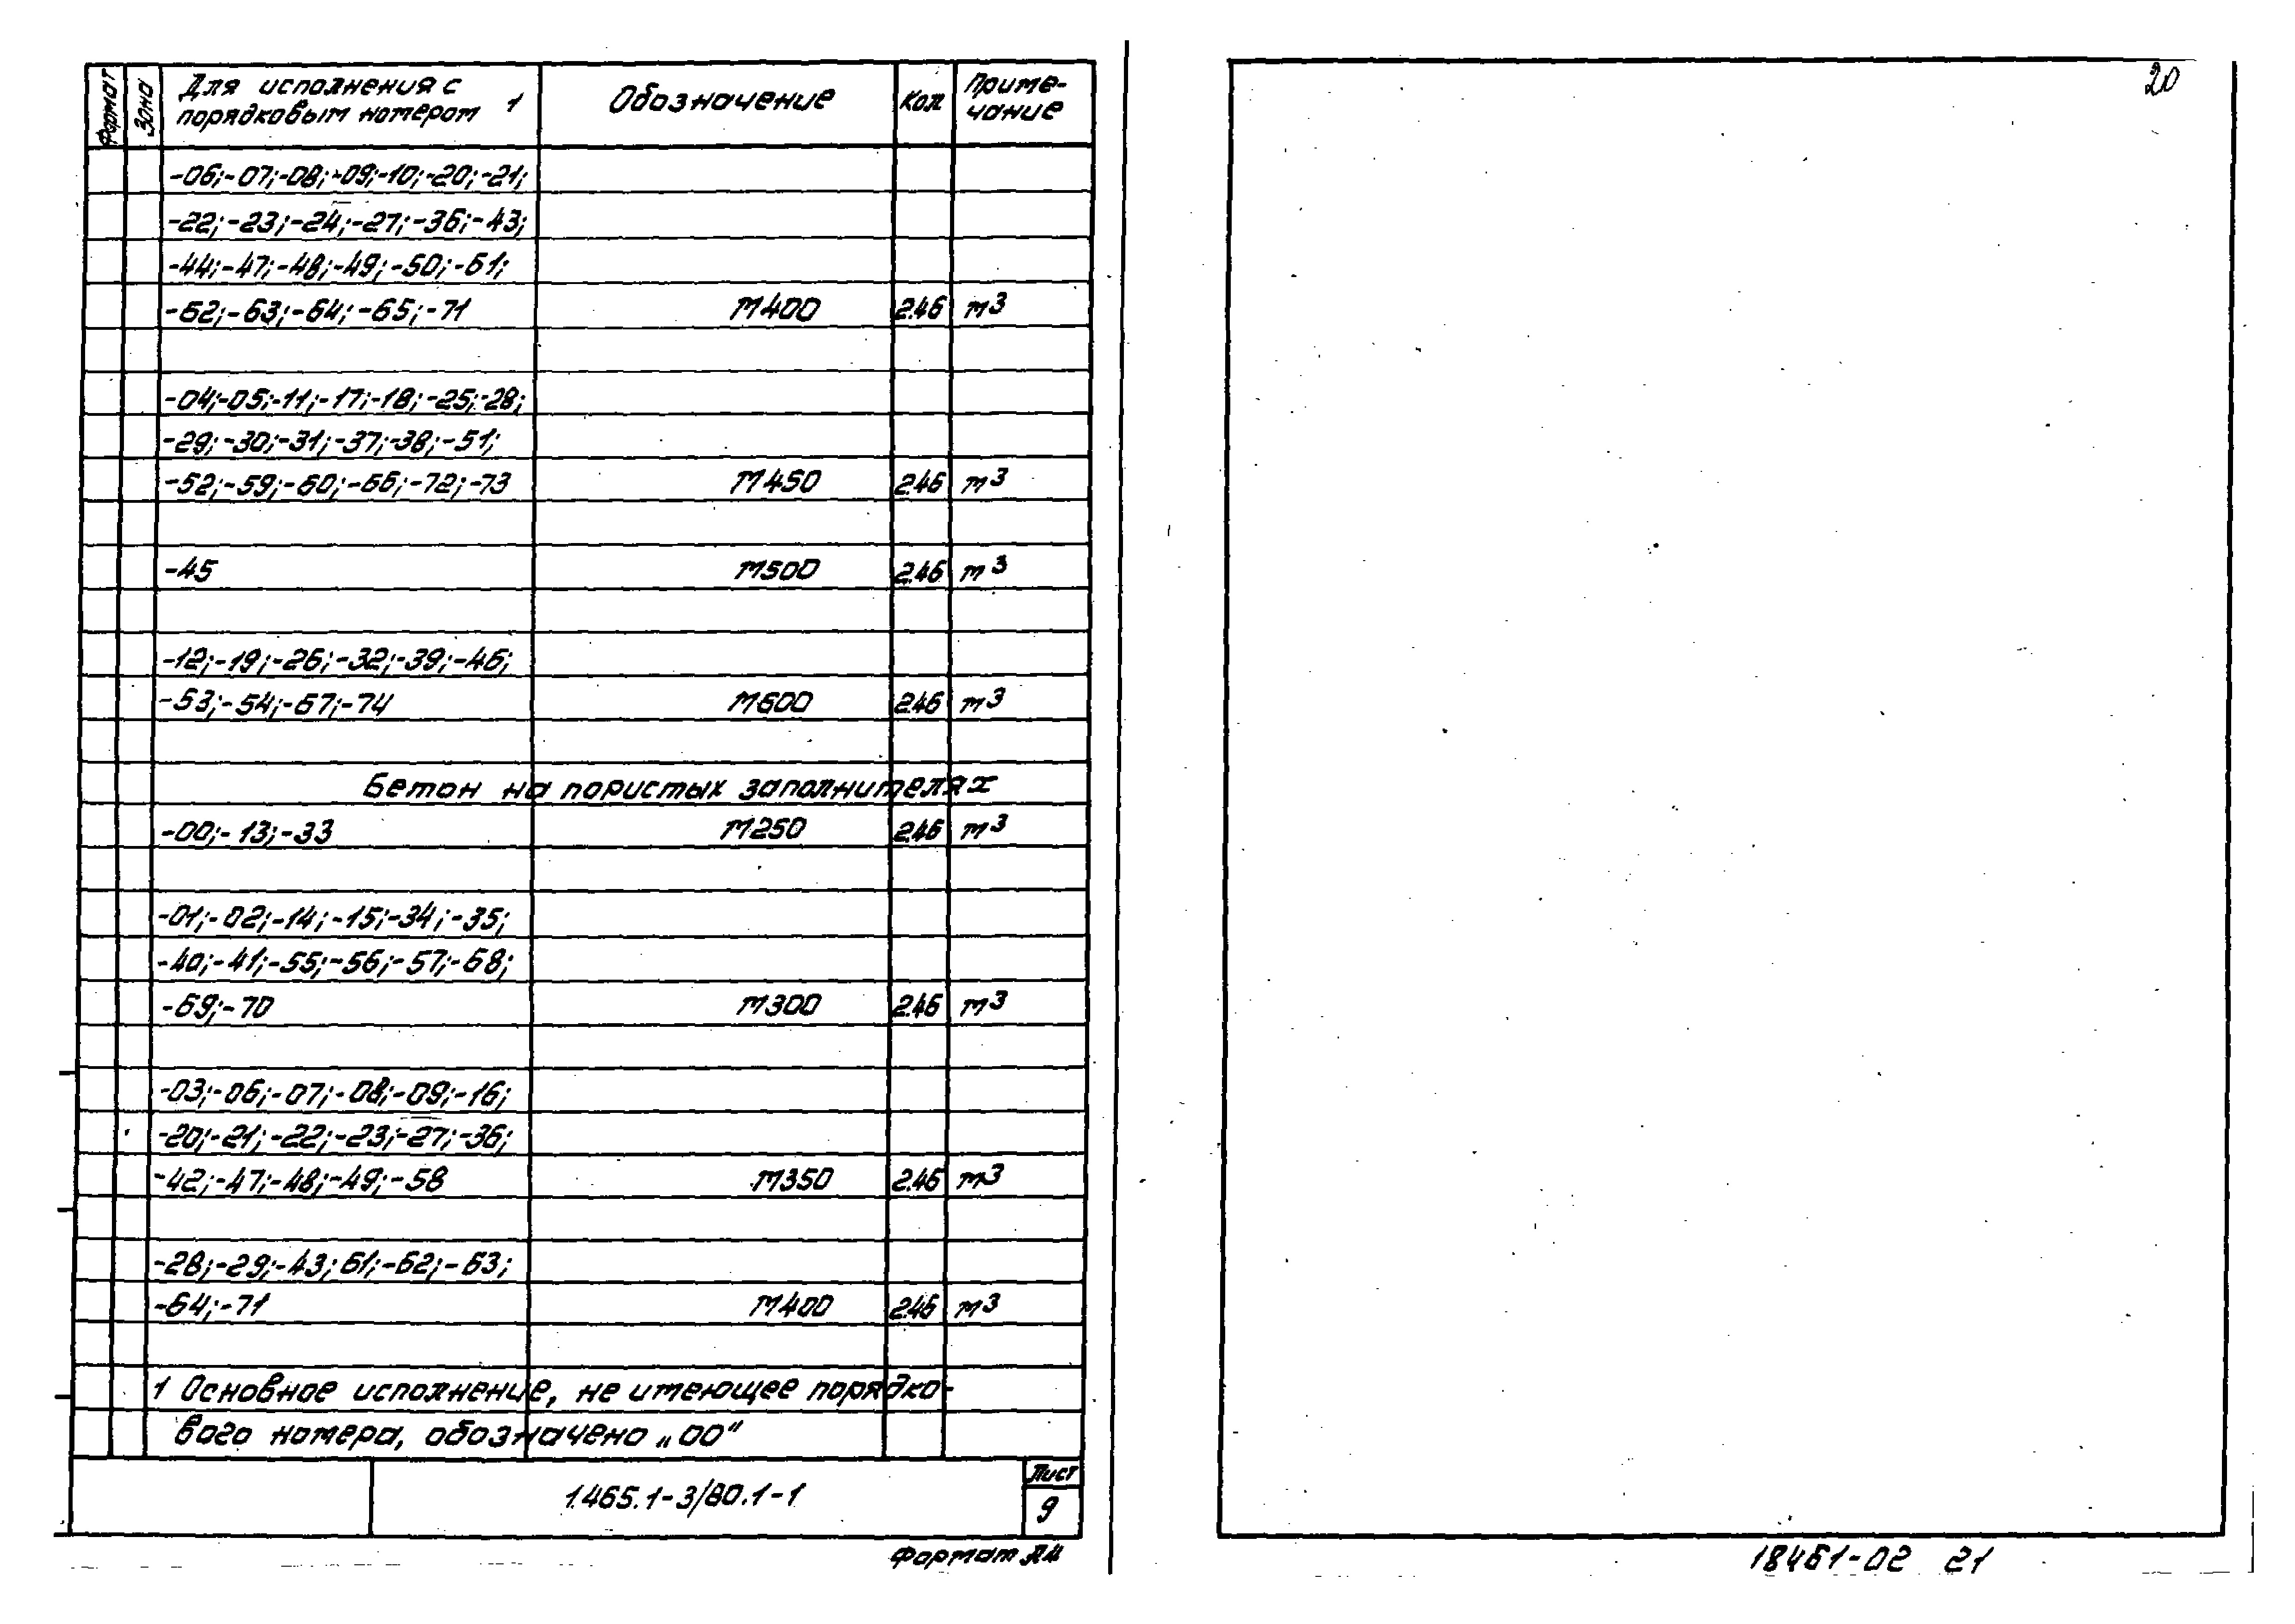 Формат Зона Для исполнения с порядковым номером 1 Обозначение Кол Приме-чание
-06;-07;-08;-09;-10;-20;-21;
-22;-23;-24;-27;-36;-43;
-44;-47;-48;-49;-50;-61;
-62;-63;-64;-65;-71 М400 2.46 м3
-04;-05;-11;-17;-18;-25;-28;
-29;-30;-31;-37;-38;-51;
-52;-59;-60;-66;-72;-73 М450 2.46 м3
-45 М500 2.46 м3
-12;-19;-26;-32;-39;-46;
-53;-54;-67;-74 М600 2.46 м3
Бетон на пористых заполнителях
-00;-13;-33 М250 2.46 м3
-01;-02;-14;-15;-34;-35;
-40;-41;-55;-56;-57;-68;
-69;-70 М300 2.46 м3
-03;-06;-07;-08;-09;-16;
-20;-21;-22;-23;-27;-36;
-42;-47;-48;-49;-58 М350 2.46 м3
-28;-29;-43;61;-62;-63;
-64;-71 М400 2.46 м3
1 Основное исполнение, не имеющее порядко-
вого номера, обозначено „00"
1.465.1-3/80.1-1 Лист 9
Формат А4
20
18461-02 21